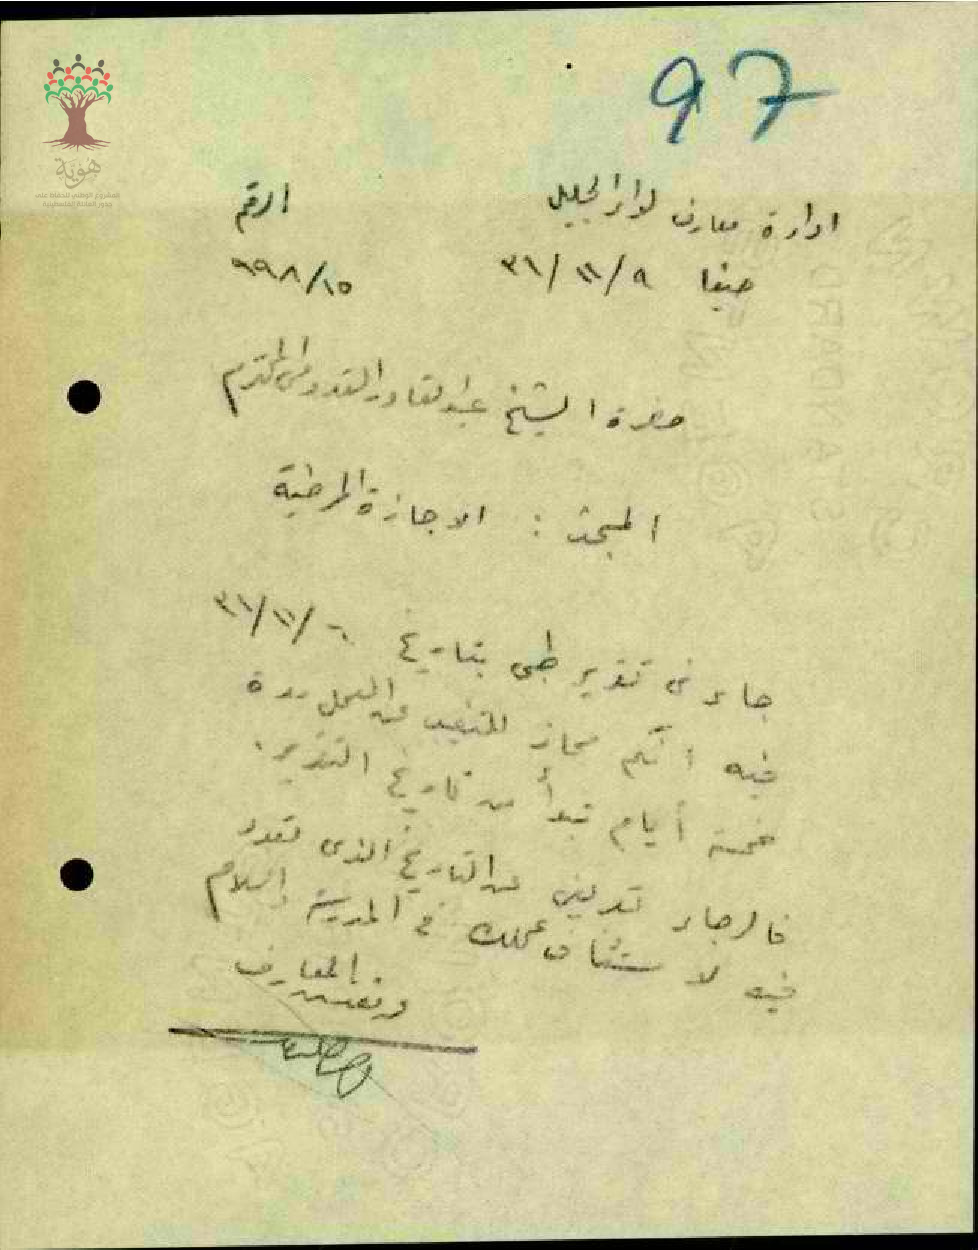 97
هوية
المشروع الوطني للحفاظ على
جذور العائلة الفلسطينية
ادارة معارف لواء الجليل الرقم
حيفا ٩/١١/٣٦ ١٥/٩٩٨
حضرة الشيخ عبد القادر المحترم
المبحث : الاجازة المرضية
جاء في تقرير طبي بتاريخ ٦/١١/٣٦
فيه انكم مجاز للتغيب عن العمل مدة
خمسة أيام تبدأ من تاريخ التقرير.
فالرجاء عن التاريخ الذي تعود
فيه لاستئناف عملك في المدرسة والسلام
مفتش المعارف